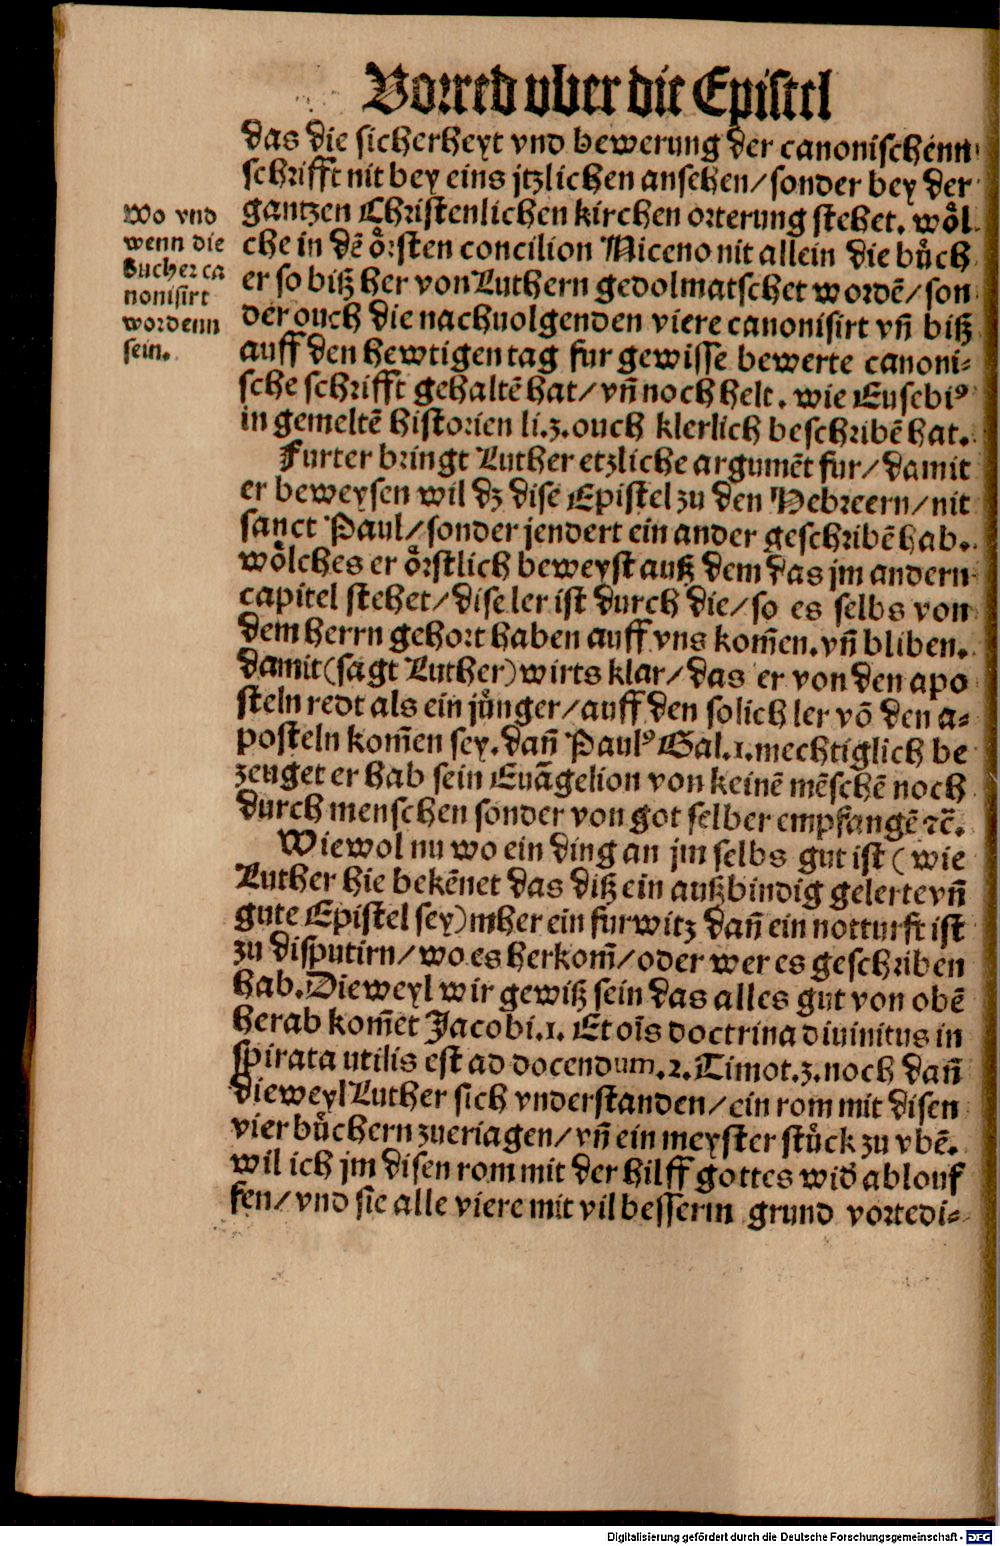 Vorred vber die Epistel
das die sicherheyt vnd bewerung der canonischenn
schrifft nit bey eins jtzlichen ansehen/sonder bey der
gantzen Christenlichen kirchen orterung stehet. wöl
che in dē örsten concilion Niceno nit allein die bůch
er so biß her von Luthern gedolmatschet wordē/son
der ouch die nachuolgenden viere canonisirt vn̄ biß
auff den hewtigen tag fur gewisse bewerte canoni⸗
sche schrifft gehaltē hat/vn̄ noch helt. wie Eusebiꝰ
in gemeltē historien li.3. ouch klerlich beschribē hat.
Wo vnd
wenn die
bucher ca
nonisirt
wordenn
sein.
Furter bringt Luther etzliche argumēt fur/damit
er beweysen wil dz dise Epistel zu den Hebreern/nit
sanct Paul/sonder jendert ein ander geschribē hab.
wölches er örstlich beweyst auß dem das jm andern
capitel stehet/dise ler ist durch die/so es selbs von
dem herrn gehort haben auff vns kom̄en.vn̄ bliben.
damit(sagt Luther)wirts klar/das er von den apo
steln redt als ein jůnger/auff den solich ler vō den a⸗
posteln kom̄en sey.dan̄ Paulꝰ Gal.1.mechtiglich be
zeuget er hab sein Euāgelion von keinē mēschē noch
durch menschen sonder von got selber empfangē ⁊c̄.
Wiewol nu wo ein ding an jm selbs gut ist (wie
Luther hie bekēnet das diß ein außbindig gelerte vn̄
gute Epistel sey)mher ein furwitz dan̄ ein notturft ist
zu disputirn/wo es herkom̄/oder wer es geschriben
hab.Dieweyl wir gewiß sein das alles gut von obē
herab kom̄et Jacobi.1. Et oīs doctrina diuinitus in
spirata utilis est ad docendum.2.Timot.3.noch dan̄
dieweyl Luther sich vnderstanden/ein rom mit disen
vier bůchern zueriagen/vn̄ ein meyster stůck zu vbē.
wil ich jm disen rom mit der hilff gottes wid̄ ablouf
fen/vnd sie alle viere mit vil besserm grund vortedi⸗
Digitalisierung gefördert durch die Deutsche Forschungsgemeinschaft - DFG